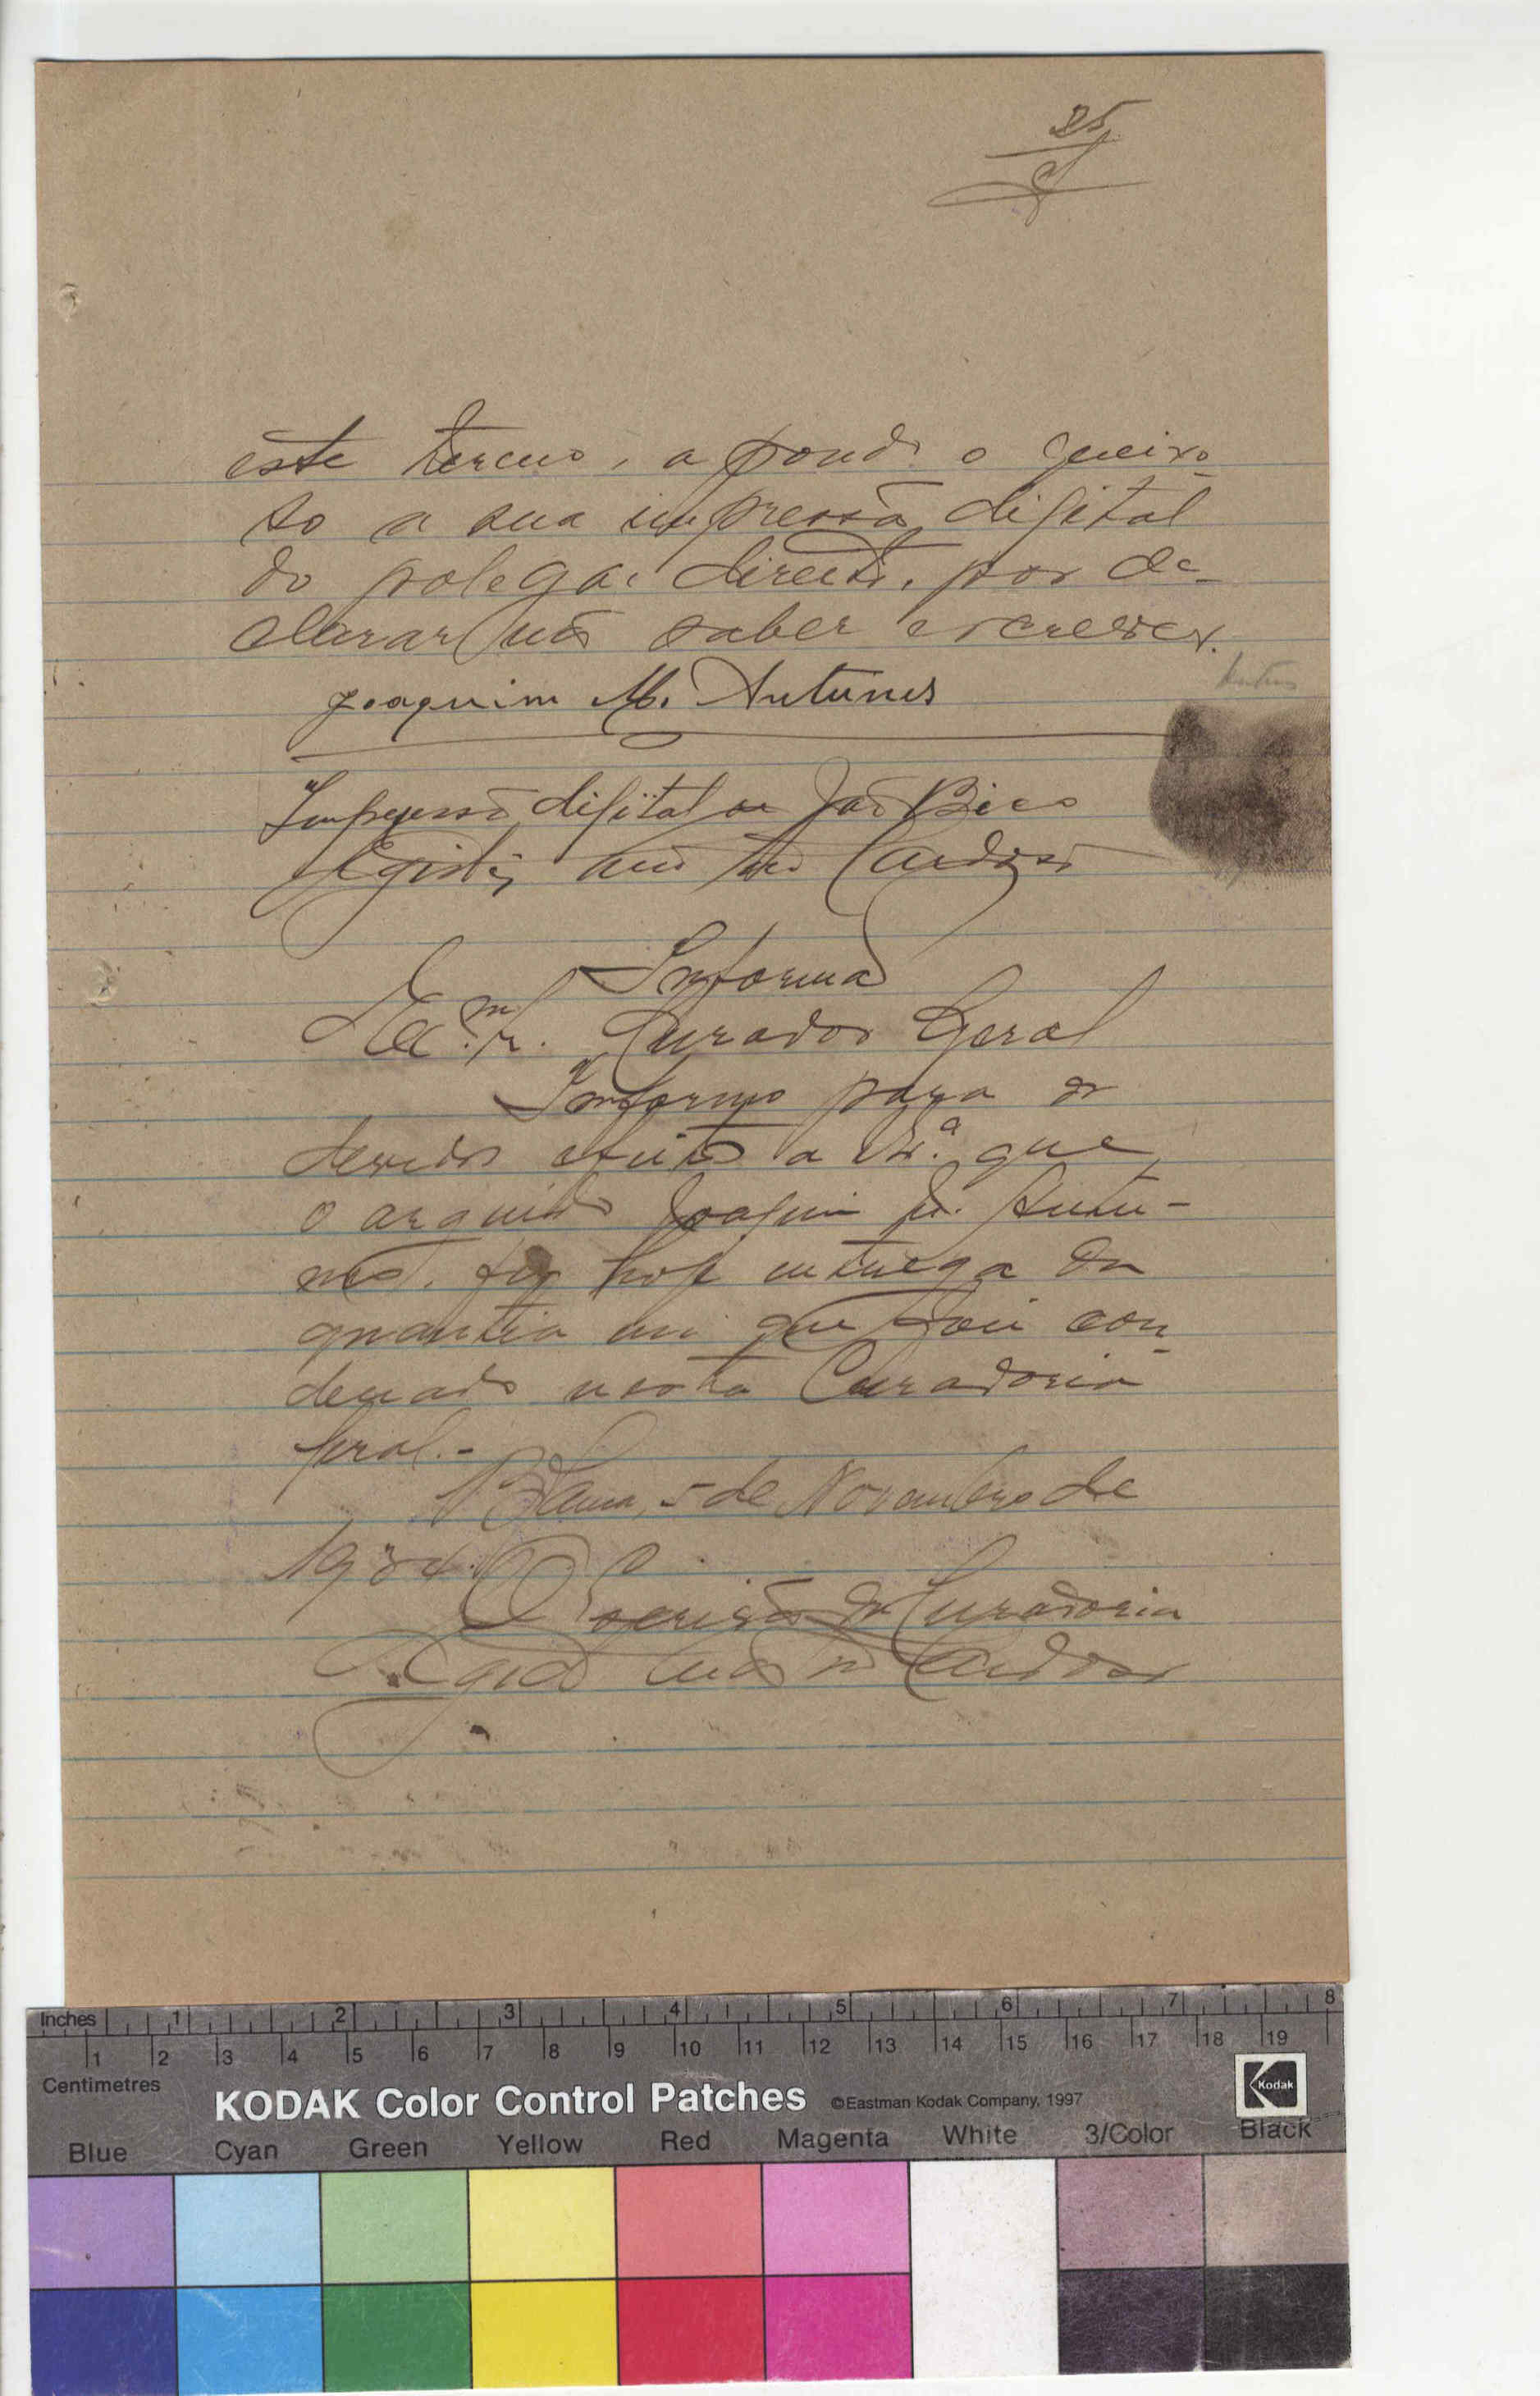 25
este termo, apondo o queixo-
so a sua impressão digital
do polegar direito, por de-
clarar não saber escrever.
Joaquim M. Antunes
Impressão digital de João Bico
Cardoso
Informação
Exmº. Sr. Curador Geral
Informo para os
devidos efeitos a V.ª que
o arguido Joaquim M. Antu-
nes, fez hoje entrega da
quantia em que foi con-
denado nesta Curadoria
Geral.-
5 de Novembro de
O Escrivão da Curadoria
Cardoso
Inches 1 2 3 4 5 6 7 8
1 2 3 4 5 6 7 8 9 10 11 12 13 14 15 16 17 18 19
Centimetres
KODAK Color Control Patches ©Eastman Kodak Company, 1997 Kodak
Blue Cyan Green Yellow Red Magenta White 3/Color Black